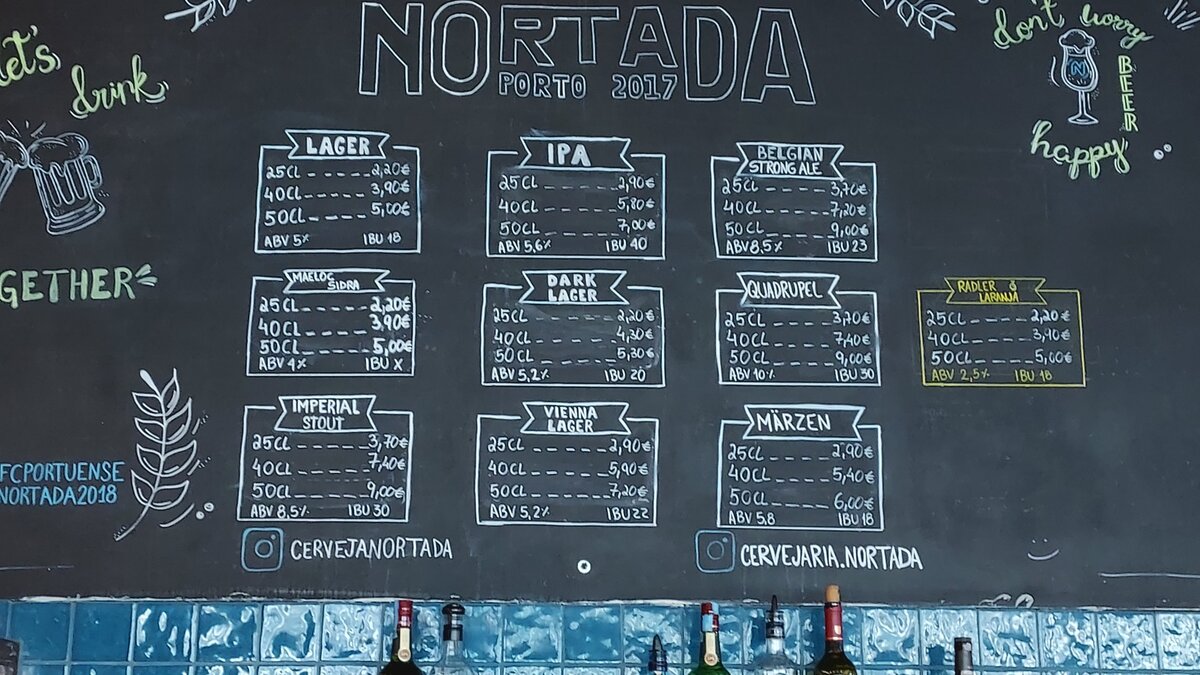 NORTADA
PORTO 2017
let's
drink
GETHER
FCPORTUENSE
NORTADA2018
don't worry
BEER
happy
N
LAGER
25CL 2,20€
40CL 3,90€
50CL 5,00€
ABV 5% IBU 18
IPA
25CL 2,90€
40CL 5,80€
50CL 7,00€
ABV 5,6% IBU 40
BELGIAN
STRONG ALE
25CL 3,70€
40CL 7,20€
50CL 9,00€
ABV 8,5% IBU 23
MAELOC
SIDRA
25CL 2,20€
40CL 3,90€
50CL 5,00€
ABV 4% IBU X
DARK
LAGER
25CL 2,20€
40CL 4,30€
50CL 5,30€
ABV 5,2% IBU 20
QUADRUPEL
25CL 3,70€
40CL 7,40€
50CL 9,00€
ABV 10% IBU 30
RADLER
LARANJA
25CL 2,20€
40CL 3,90€
50CL 5,00€
ABV 2,5% IBU 18
IMPERIAL
STOUT
25CL 3,70€
40CL 7,40€
50CL 9,00€
ABV 8,5% IBU 30
VIENNA
LAGER
25CL 2,90€
40CL 5,90€
50CL 7,20€
ABV 5,2% IBU 22
MÄRZEN
25CL 2,90€
40CL 5,40€
50CL 6,00€
ABV 5,8 IBU 18
CERVEJANORTADA
CERVEJARIA.NORTADA